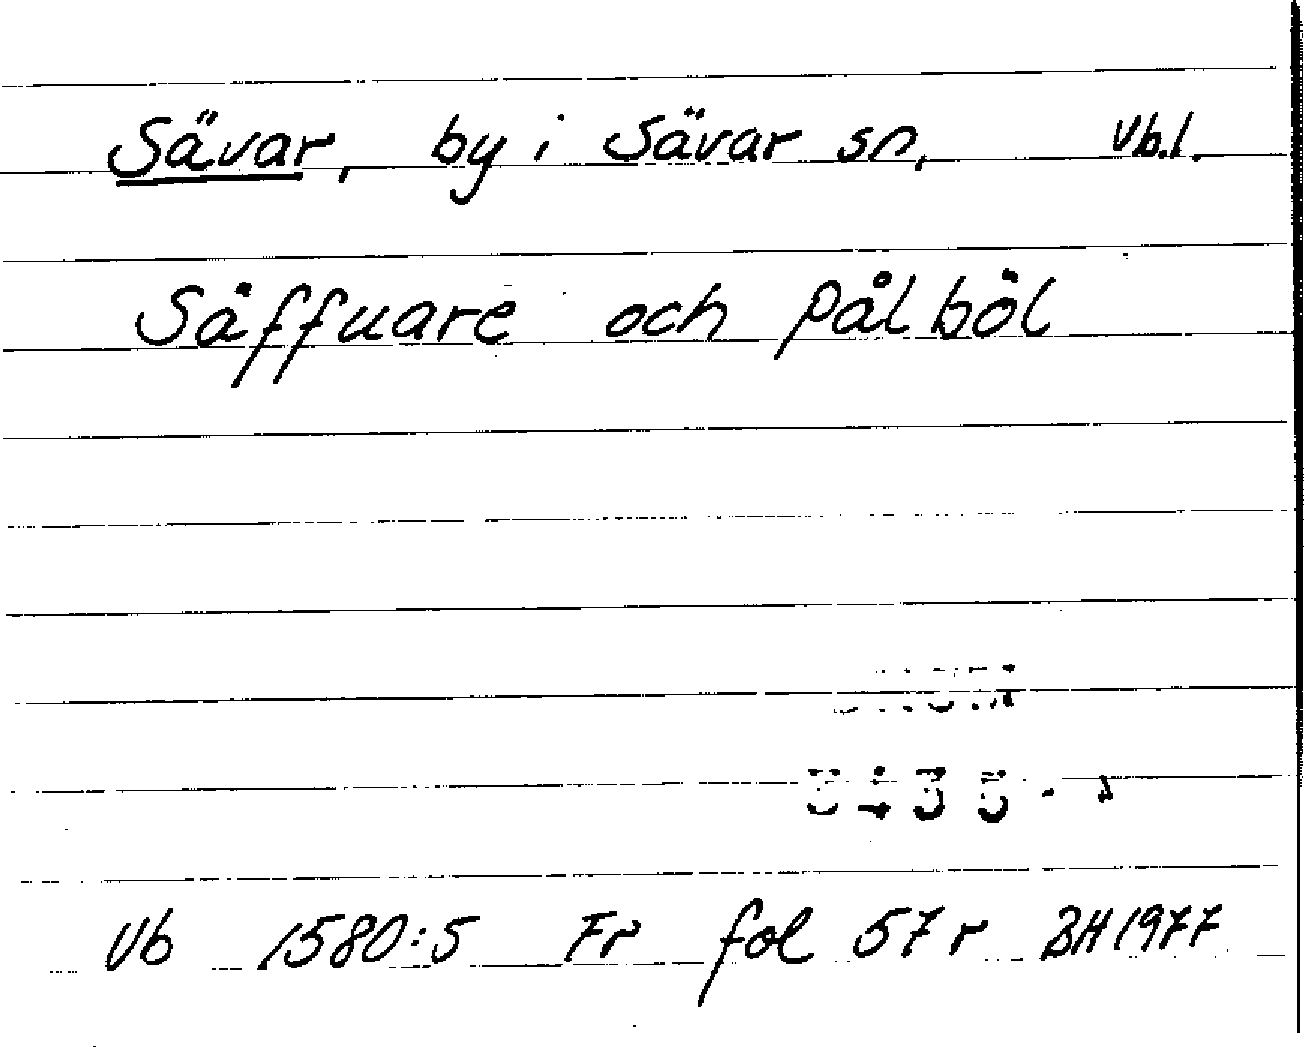 Sävar, by i Sävar sn, Vb.l.
Såffuare och pålböl
Vb 1580:5 Fr fol 57 r BH 1977